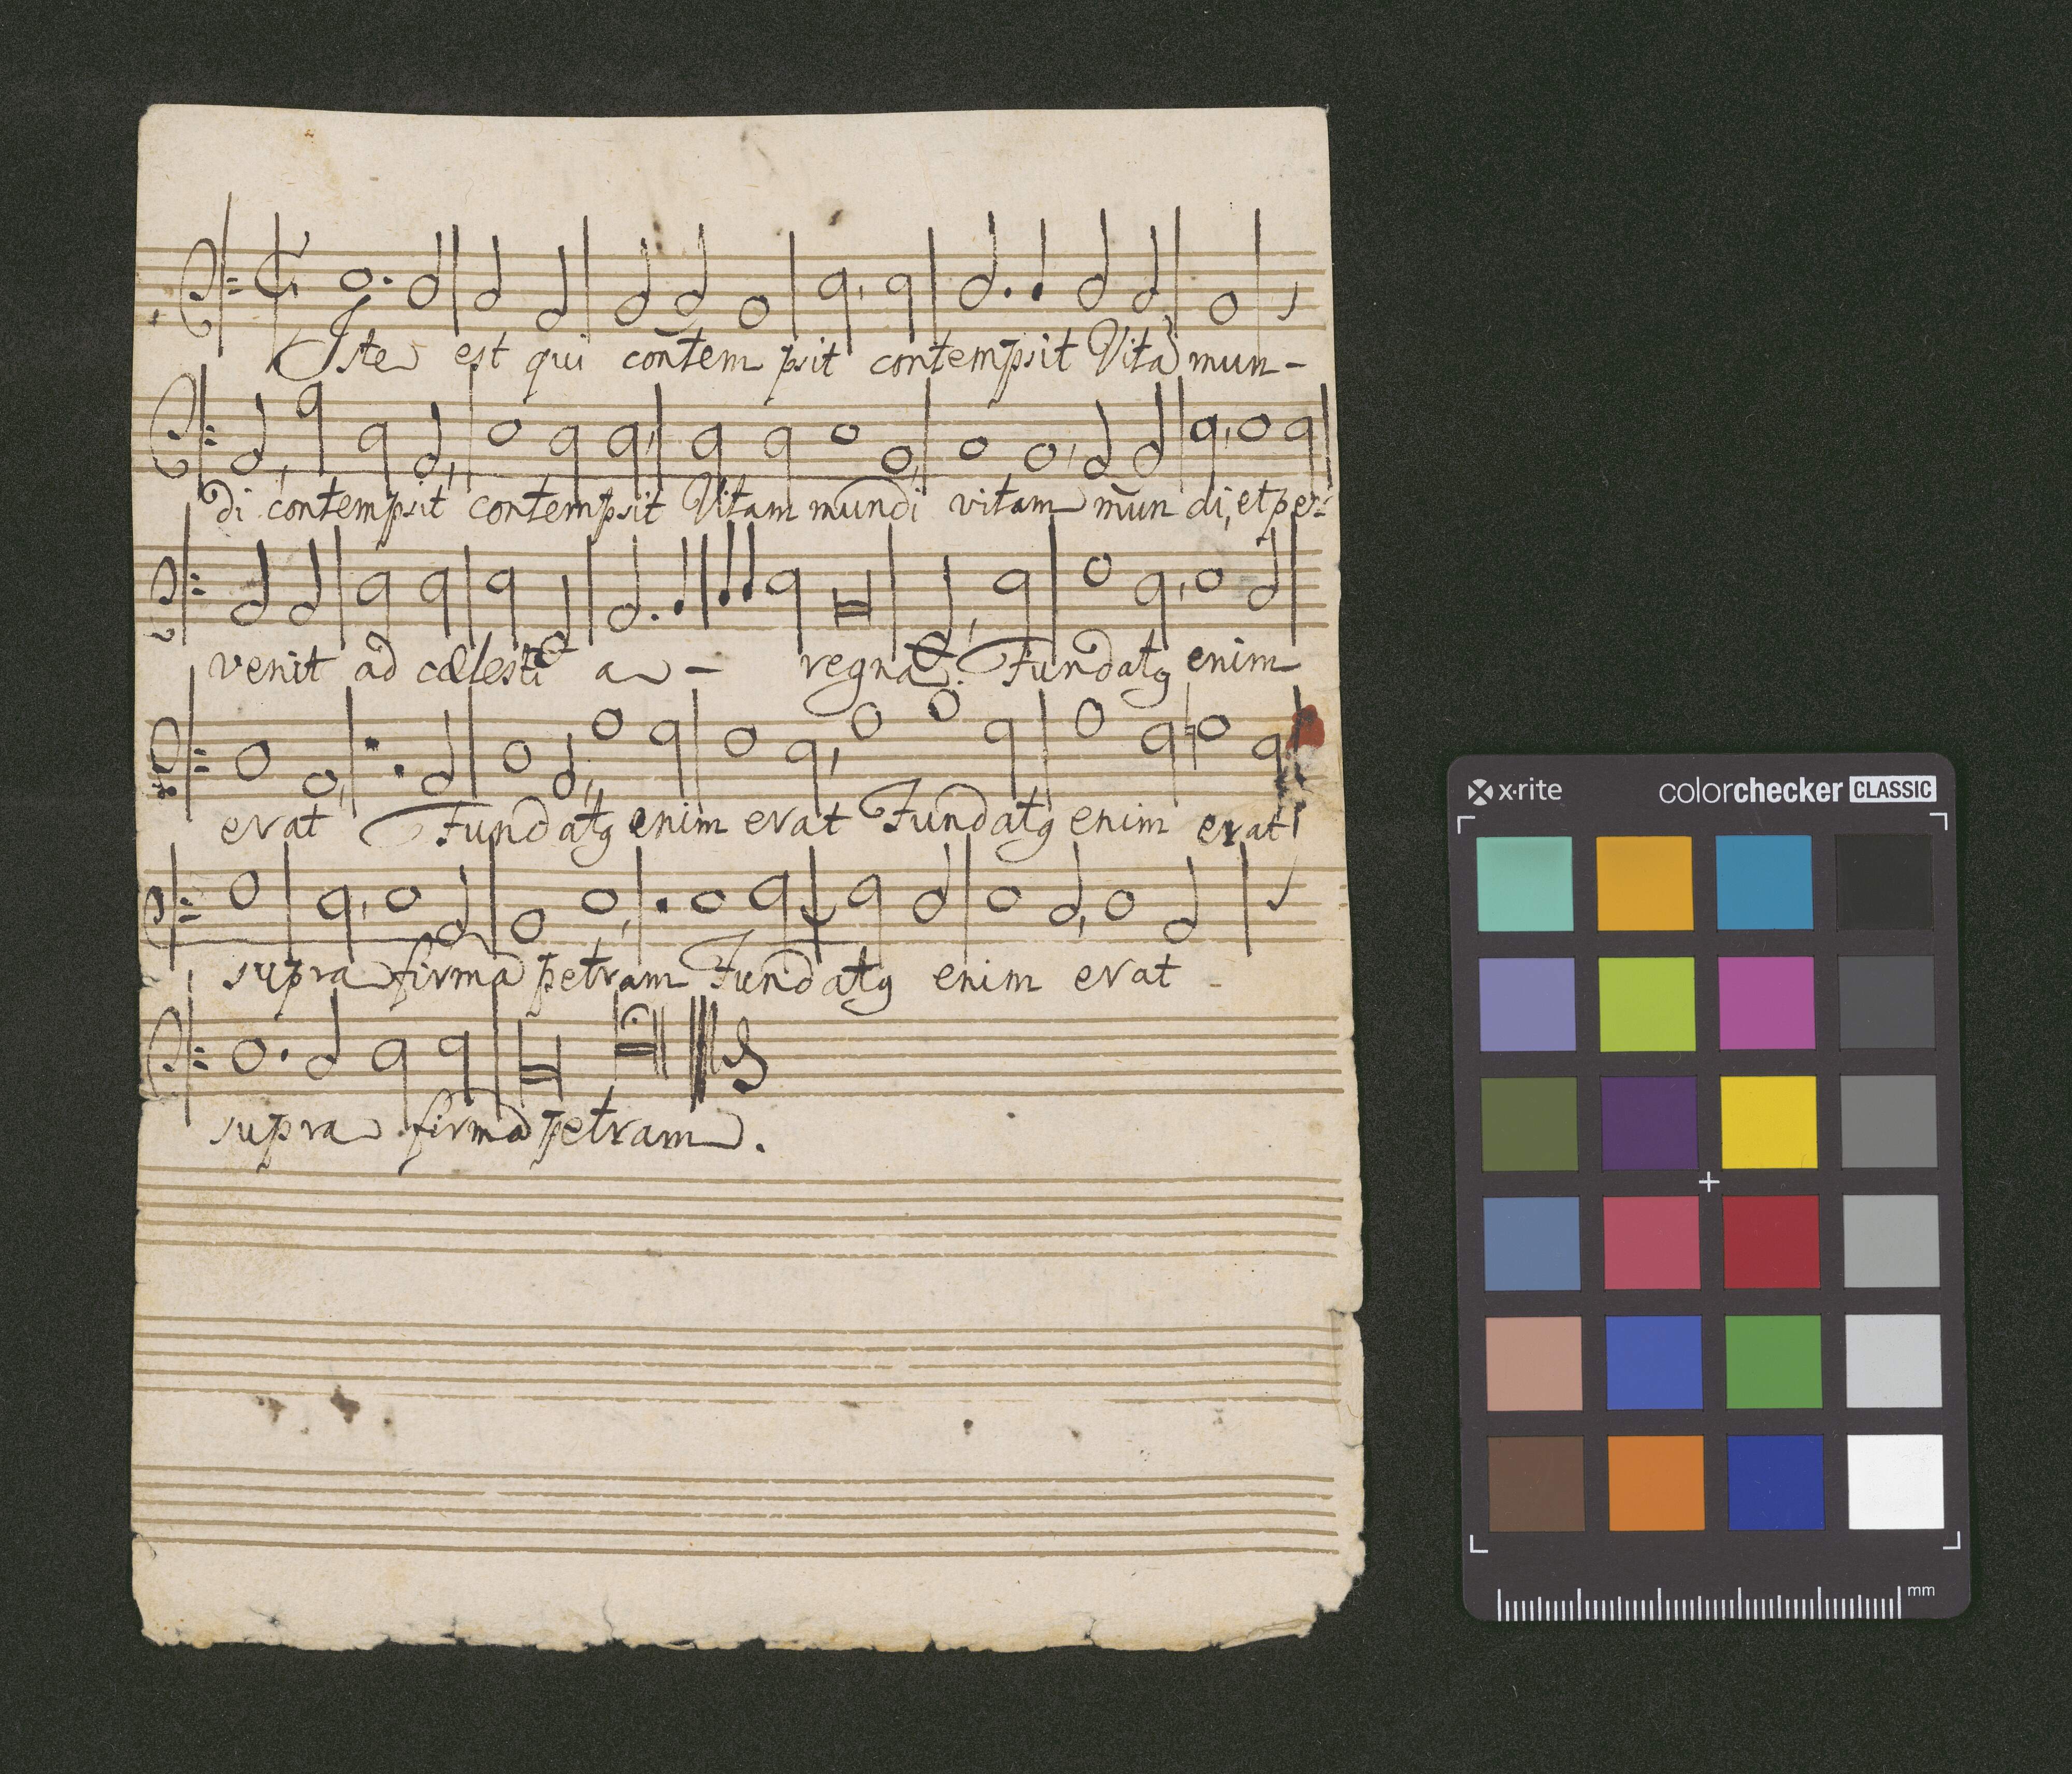 Iste est qui contem psit contempsit Vitã mun-
di contempsit contempsit Vitam mundi vitam mun di, et per-
venit ad cælesti a - regna. Fundatg enim
erat Fundatg enim erat Fundatg enim erat
supra firmã petram Fundatg enim erat -
supra firmã petram.
x-rite colorchecker CLASSIC
mm